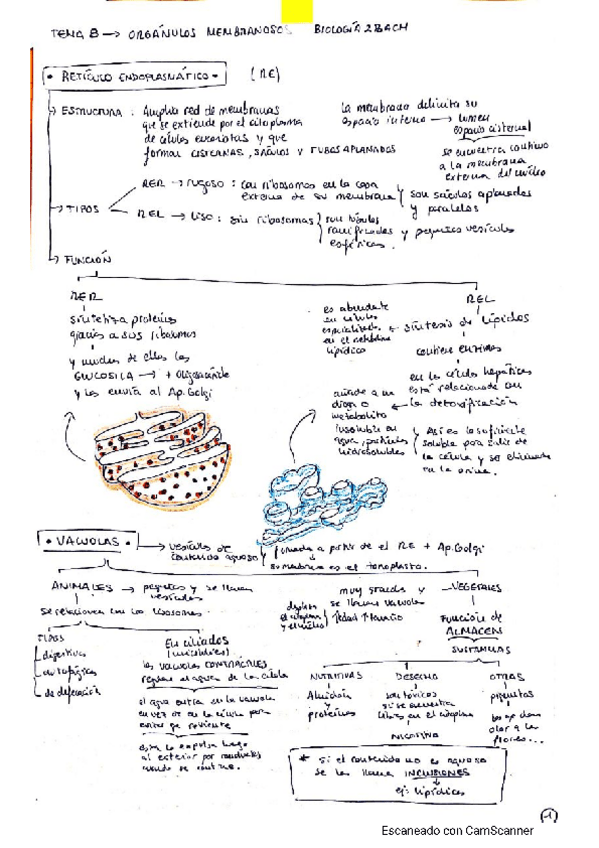 TEMA 8 → ORGÁNULOS MEMBRANOSOS BIOLOGÍA 2 BACH
• RETÍCULO ENDOPLASMÁTICO • (RE)
ESTRUCTURA : Amplia red de membranas
que se extiende por el citoplasma
de células eucariotas y que
forman CISTERNAS, SÁCULOS Y TUBOS APLANADOS
la membrana delimita su
espacio interno → lumen
espacio cisternal
se encuentra continuo
a la membrana
externa del núcleo
TIPOS
RER → rugoso : con ribosomas en la capa
externa de su membrana
son sáculos aplanados
y paralelos
REL → LISO : sin ribosomas
son túbulos
ramificados y pequeñas vesículas
esféricas.
FUNCIÓN
RER
sintetiza proteínas
gracias a sus ribosomas
y muchas de ellas las
GLUCOSILA → + oligosacárido
y las envía al Ap. Golgi
REL
síntesis de lípidos
es abundante
en células
especializadas
en el metabolismo
lipídico
contiene enzimas
en las células hepáticas
está relacionado con
la detoxificación
añade a un
droga o
metabolito
insoluble en
agua, partículas
hidrosolubles
Así es lo suficiente
soluble para salir de
la célula y se elimina
en la orina.
• VACUOLAS •
→ vesículas de
contenido acuoso
formada a partir de el RE + Ap. Golgi
su membrana es el tonoplasto.
ANIMALES → pequeñas y se llaman
vesículas
se relacionan con los lisosomas
TIPOS
digestivas
autofágicas
de
En ciliados
(unicelulares)
las VACUOLAS CONTRÁCTILES
regulan el agua de la célula
el agua entra en la vacuola
en vez de en la célula para
evitar que reviente
esta la expulsa luego
al exterior por
cuando se contrae.
VEGETALES
muy grandes y
se llaman vacuolas
desplaza
el citoplasma
y el núcleo
↑ edad ↑ tamaño
FUNCIÓN DE
ALMACÉN
SUSTANCIAS
NUTRITIVAS
Almidón
y
proteínas
DESECHO
son tóxicos
si se encuentra
libres en el citoplasma
NICOTINA
OTRAS
pigmentos
los que dan
olor a las
flores...
* si el contenido no es acuoso
se les llama INCLUSIONES
ej: lipídicas
-1
Escaneado con CamScanner